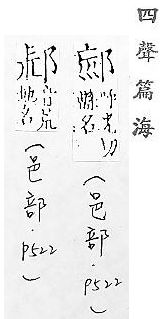 四聲篇海
呼光切縣名(邑部.P522)
音荒地名(邑部.P522)